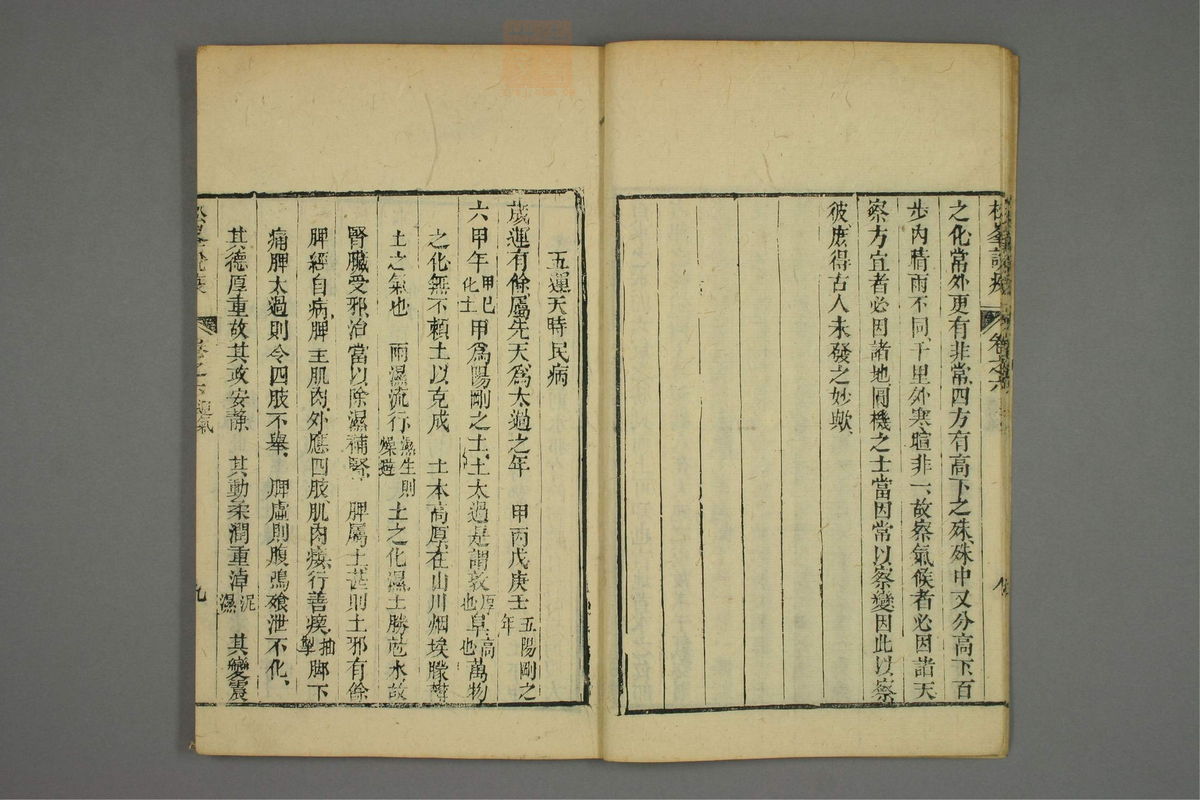 松峯說疫
卷之六
八
之化常外更有非常四方有高下之殊殊中又分高下百
步內晴雨不同千里外寒暄非一故察氣候者必因諸天
察方宜者必因諸地圓機之士當因常以察變因此以察
彼庶得古人未發之妙歟
五運天時民病
歲運有餘屬先天爲太過之年　甲丙戊庚壬五陽剛之年
六甲年甲已化土甲爲陽剛之土土太過是謂敦厚也阜高也萬物
之化無不賴土以克成　土本高厚在山川烟埃朦欝
土之氣也　雨濕流行濕生則燥避土之化濕土勝尅水故
腎臟受邪治當以除濕補腎　脾屬土甚則土邪有餘
脾經自病脾主肌肉外應四肢肌肉痿行善瘈抽掣脚下
痛脾太過則令四肢不舉　脾虛則腹鳴飧泄不化
其德厚重故其政安靜　其動柔潤重淖泥濕　其變震
松峯說疫
卷之六運氣
九